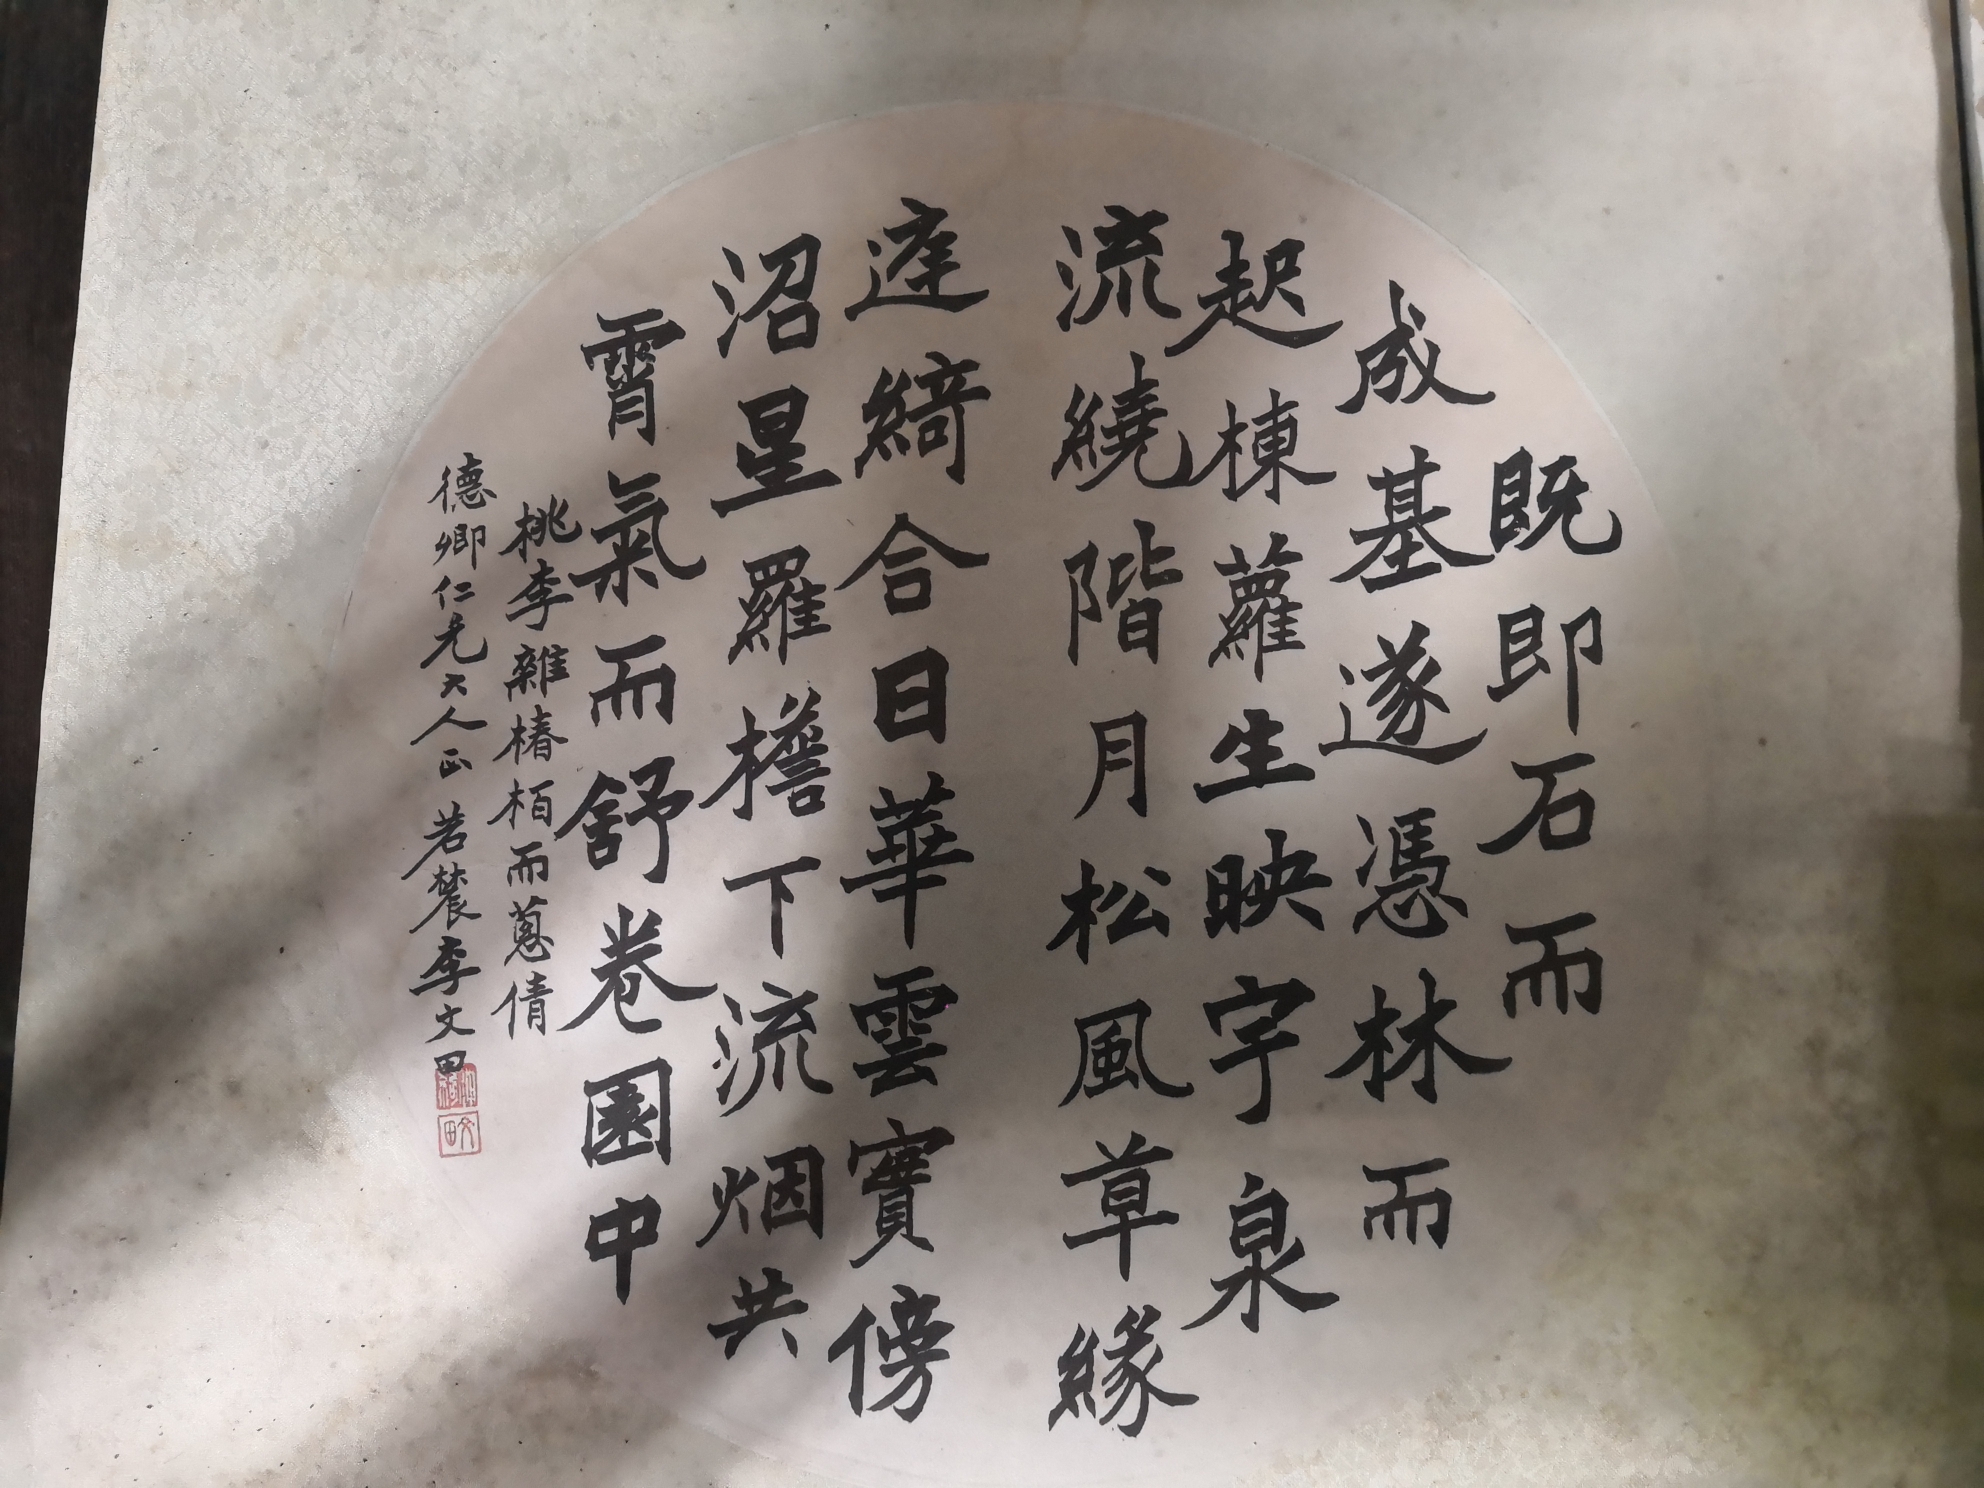 既即石而
成基遂憑林而
起棟蘿生映宇泉
流繞階月松風草緣
庭綺合日華雲實傍
沼星羅檐下流烟共
霄氣而舒卷園中
桃李雜椿柏而蔥倩
德卿仁兄大人正 若農李文田
文田